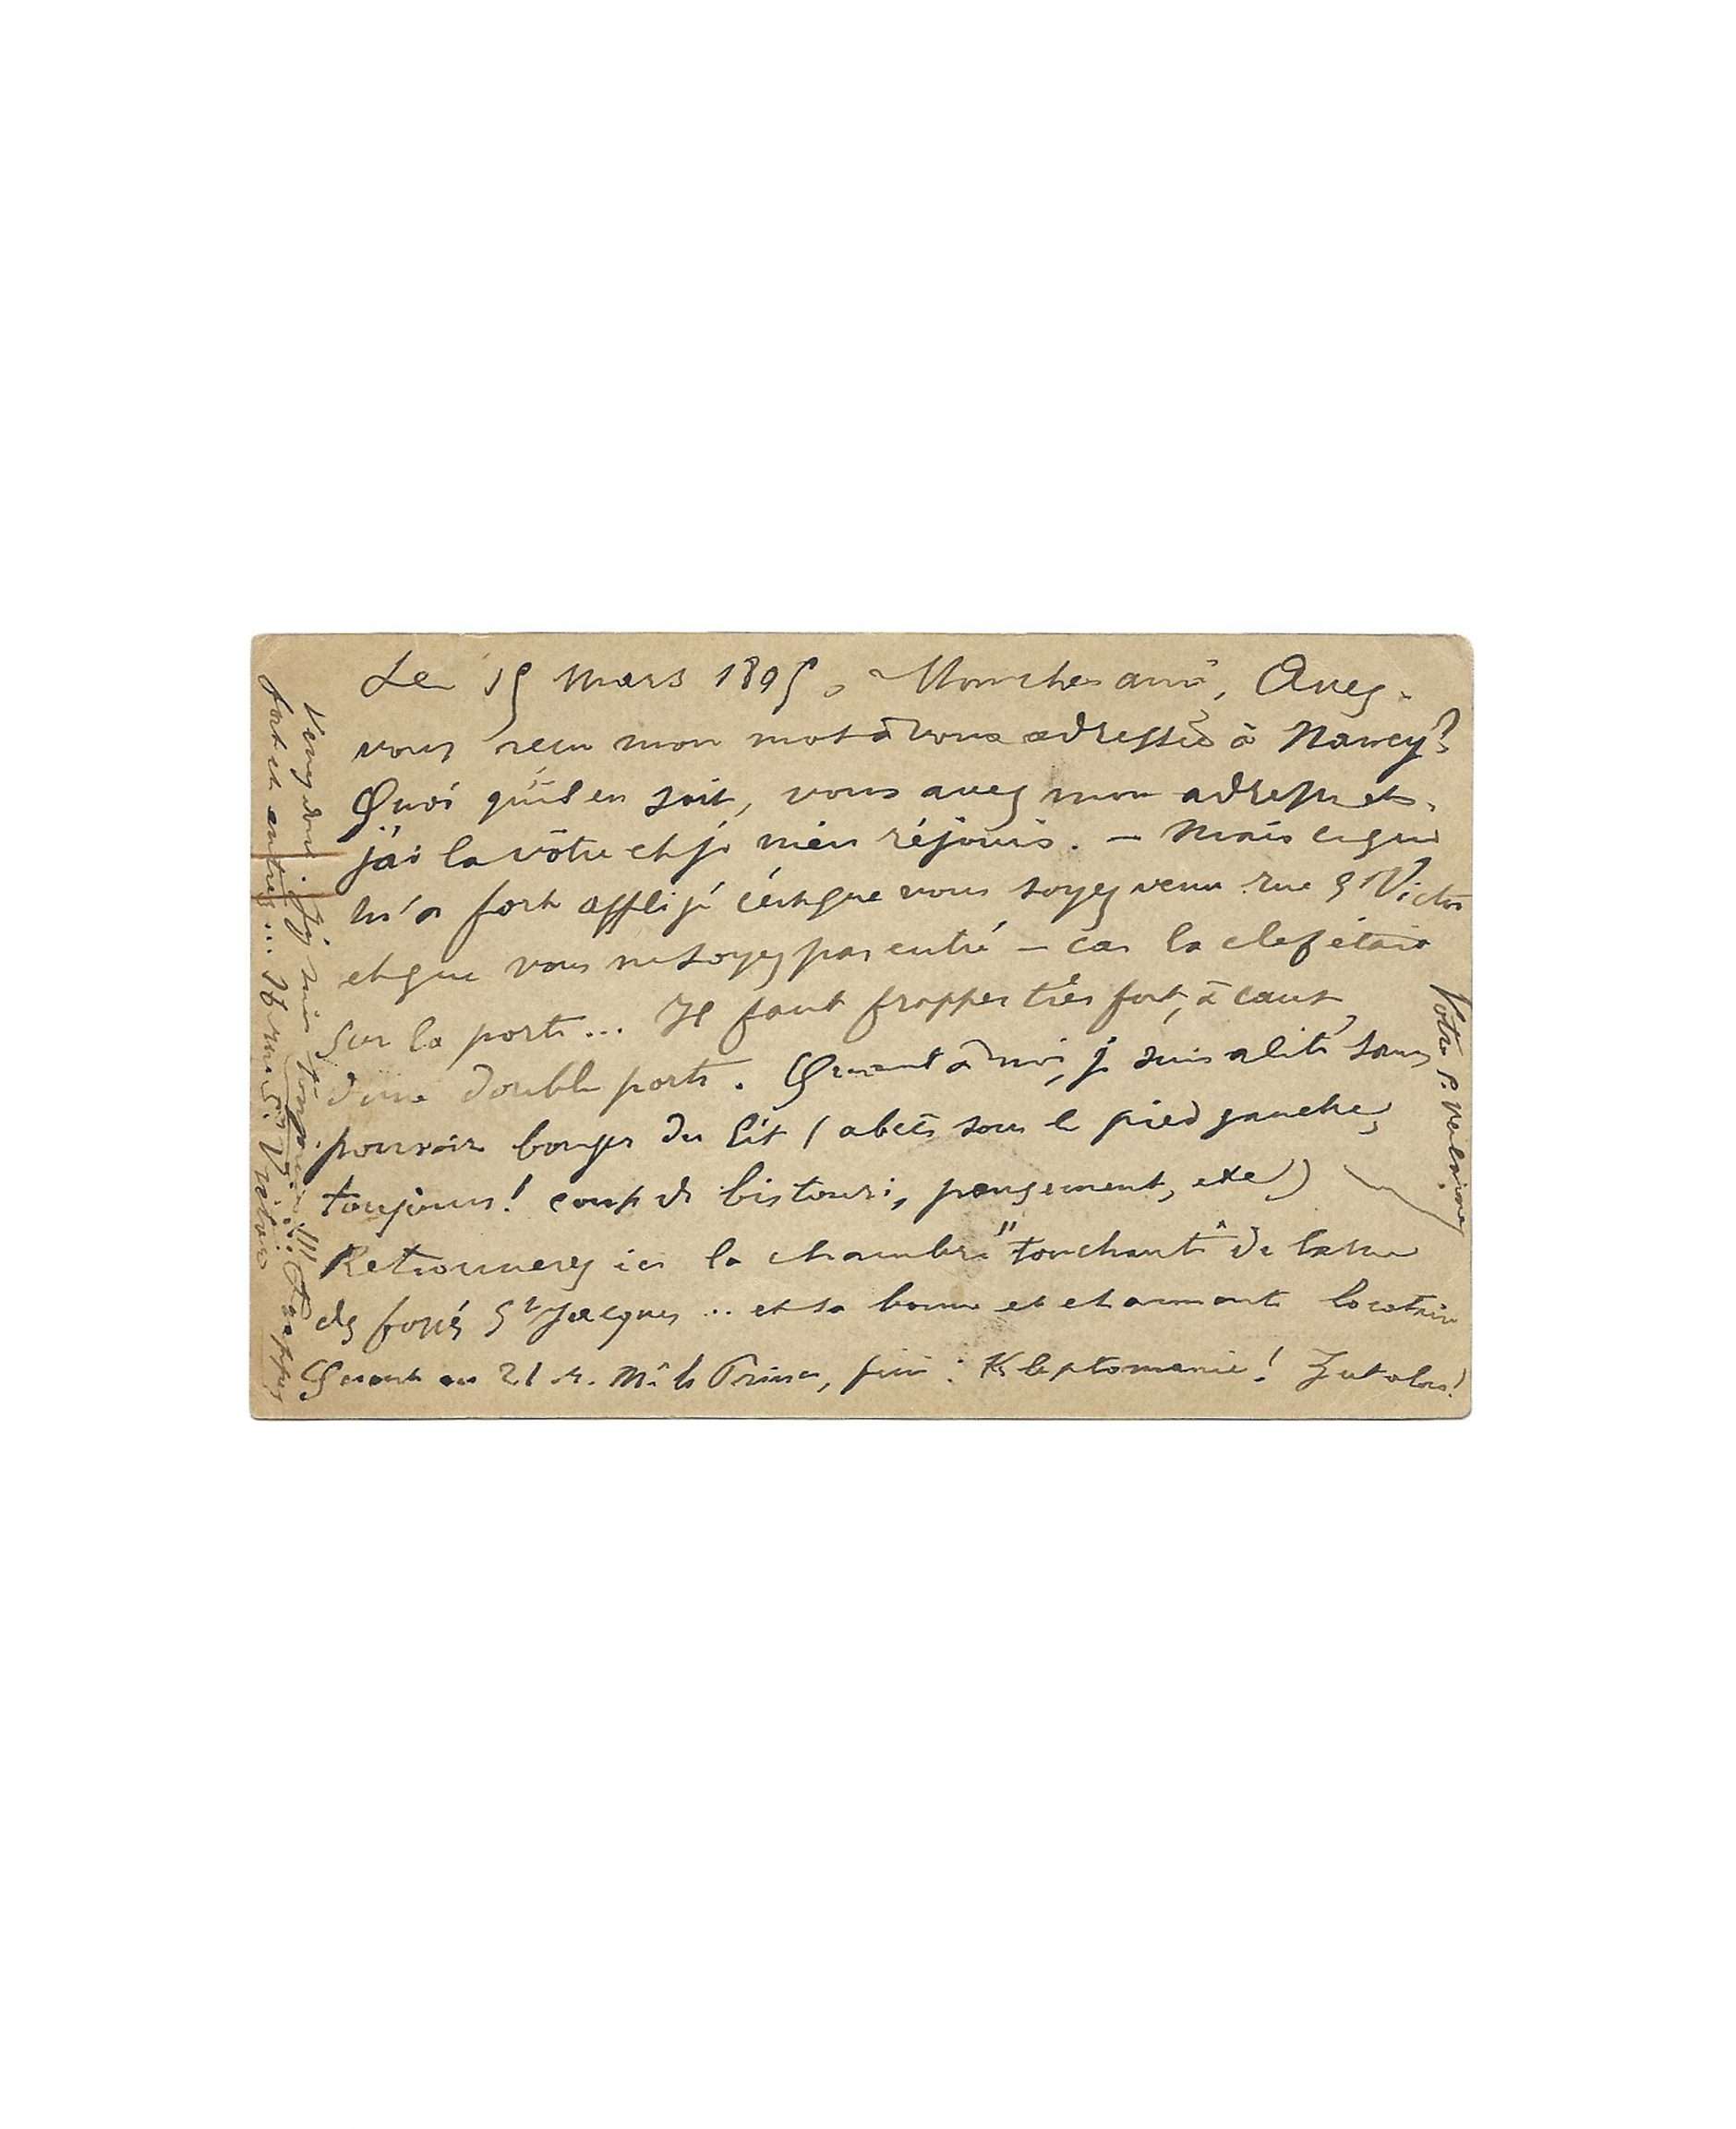 Le 15 Mars 1895. Mon cher ami, Avez-
vous reçu mon mot à vous adressé à Nancy?
Quoi qu'il en soit, vous avez mon adresse et
j'ai la vôtre et je m'en réjouis. — Mais ce qui
m'a fort affligé c'est que vous soyez venu rue St Victor
et que vous ne soyez pas entré — car la clef était
sur la porte... Il faut frapper très fort, à cause
d'une double porte. Quant à moi, je suis alité sans
pouvoir bouger du lit (abcès sous le pied gauche,
toujours! coup de bistouri, pansement, etc)
Retrouverez ici la chambre "touchante" de la rue
des fossés St Jacques... et sa bonne et charmante locataire
Quant au 21 r. Mr le Prince, fini: Kleptomanie! Zut alors!
Venez donc. J'y suis toujours!!! Frappez
fort et entrez... 16 rue St Victor
Votre P. Verlaine